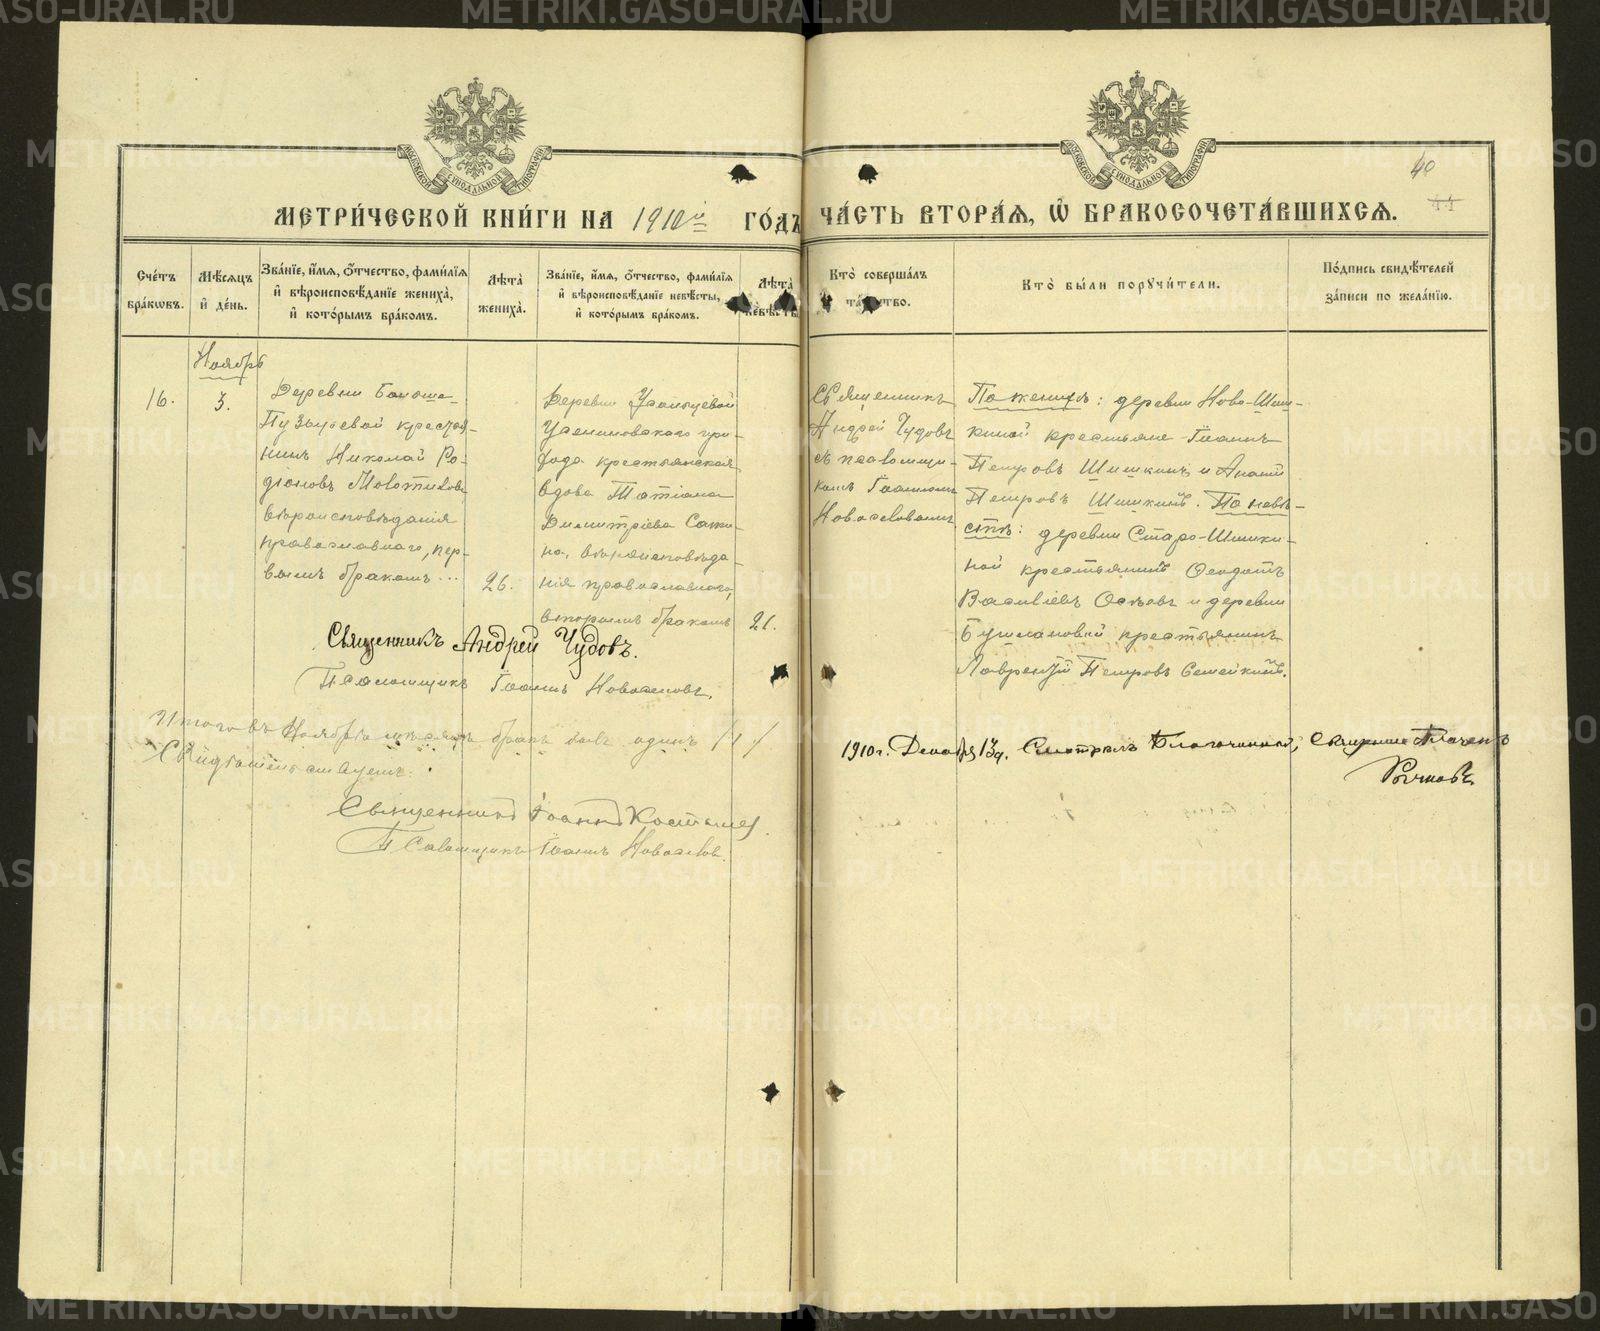 МЕТРИ́ЧЕСКОЙ КНИ́ГИ НА 1910й ГО́ДЪ
ЧА́СТЬ ВТОРА́Я, Ѿ БРАКОСОЧЕТА́ВШИХСЯ.
40
Сче́тъ бра́ковъ.
Мѣ́сяцъ и́ де́нь.
Зва́нїе, и́мя, ѻ́тчество, фами́лїя и́ вѣроисповѣ́данїе жениха̀, и́ кото́рымъ бра́комъ.
Лѣта̀ жениха̀.
Зва́нїе, и́мя, ѻ́тчество, фами́лїя и́ вѣроисповѣ́данїе невѣ́сты, и́ кото́рымъ бра́комъ.
Лѣта̀
Кто̀ соверша́лъ
Кто̀ бы́ли пору́чи́тели.
По́дпись свидѣ́телей за́писи по жела́нїю.
Ноябрь
16.
3.
Деревни
крестья-
нинъ Николай Ро-
діоновъ
вѣроисповѣданія
православнаго, пер-
вымъ бракомъ...
26.
Деревни
при-
хода крестьянская
вдова Татіана
Димитріева
вѣроисповѣда-
нія православнаго,
вторымъ бракомъ
21.
Священникъ
Андрей Чудовъ
съ псаломщи-
комъ Іоанномъ
Новоселовымъ
По женихѣ: деревни Ново-Шиш-
киной крестьяне Іоаннъ
Петровъ Шишкинъ и
Петровъ Шишкинъ. По невѣ-
стѣ: деревни Старо-Шишки-
ной крестьянинъ Ѳеодотъ
Василіевъ и деревни
Бушлановой крестьянинъ
Лаврентій Петровъ
Священникъ Андрей Чудовъ.
Псаломщикъ Іоаннъ Новоселовъ.
Итого въ Ноябрѣ мѣсяцѣ бракъ былъ одинъ /1/
Священникъ Іоаннъ
Псаломщикъ Іоаннъ Новоселовъ.
1910 г. Декабря 13 д. Смотрѣлъ Благочинный, Священникъ
METRIKI.GASO-URAL.RU